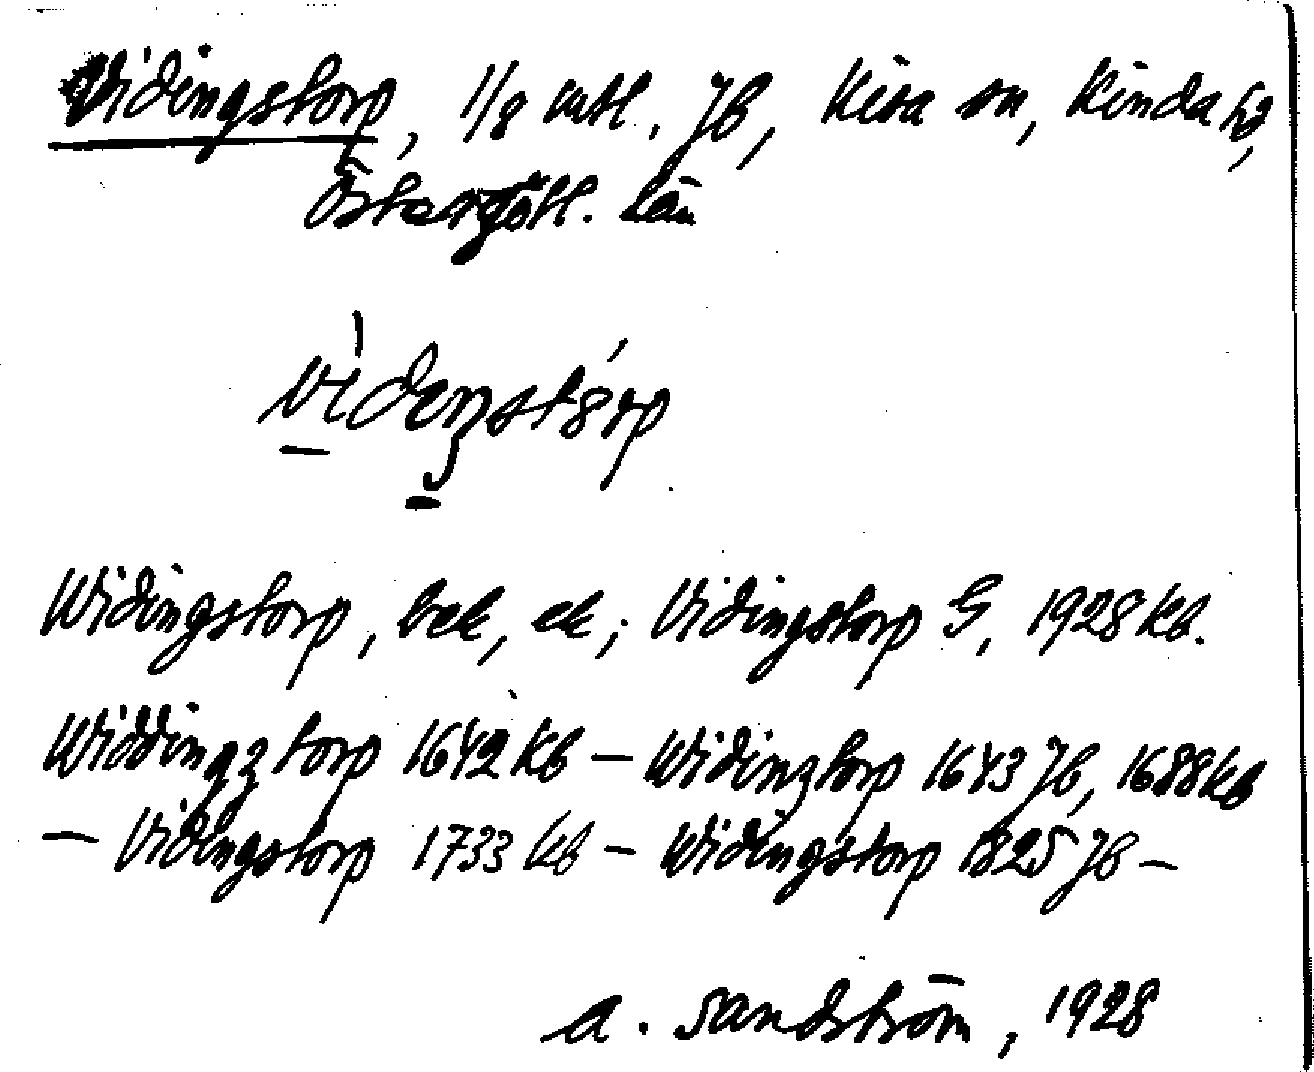 Vidingstorp, 1/8 mtl. Jb, Kisa sn, Kinda hd,
Östergötl. län
vìdeŋstórp
Widingstorp, bek, ek; Vidingstorp G, 1928 Kb.
Widdingztorp 1642 Kb – Widinztorp 1643 Jb, 1688 Kb
– Vidingstorp 1733 Kb – Widingstorp 1825 Jb –
A. Sandström, 1928